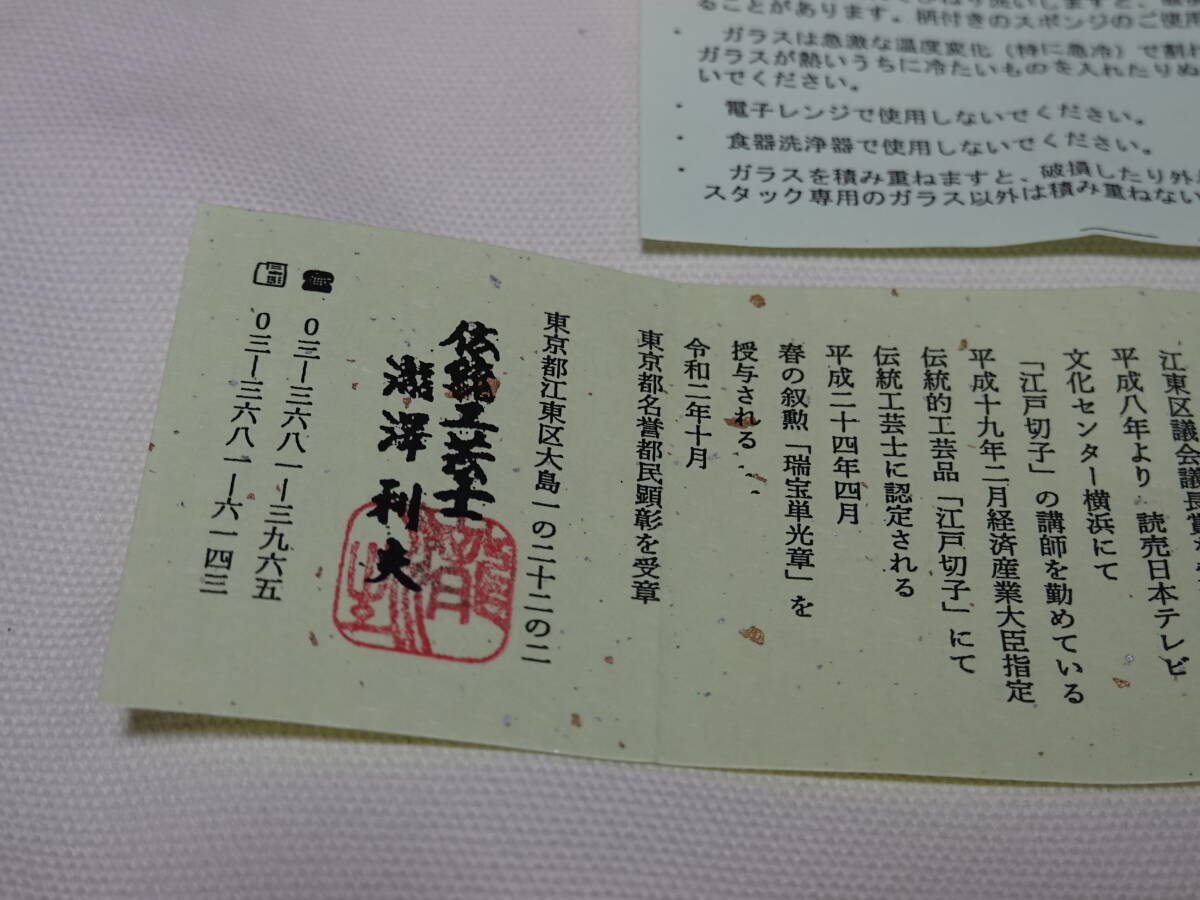 ることがあります。柄付きのスポンジのご使用
・ ガラスは急激な温度変化（特に急冷）で割れ
ガラスが熱いうちに冷たいものを入れたりぬ
いでください。
・ 電子レンジで使用しないでください。
・ 食器洗浄器で使用しないでください。
・ ガラスを積み重ねますと、破損したり外
スタック専用のガラス以外は積み重ねない
江東区議会議長賞
平成八年より 読売日本テレビ
文化センター横浜にて
「江戸切子」の講師を勤めている
平成十九年二月経済産業大臣指定
伝統的工芸品「江戸切子」にて
伝統工芸士に認定される
平成二十四年四月
春の叙勲「瑞宝単光章」を
授与される
令和二年十月
東京都名誉都民顕彰を受章
東京都江東区大島一の二十二の二
伝統工芸士
瀧澤利夫
☎ 〇三ー三六八一ー三九六五
〇三ー三六八一ー六一四三